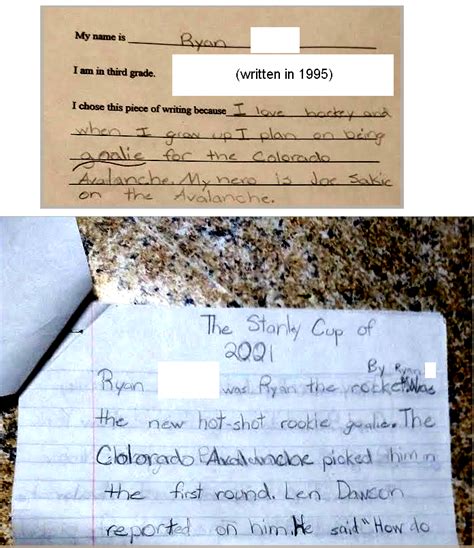 My name is Ryan
I am in third grade. (written in 1995)
I chose this piece of writing because I love hockey and
when I grow up I plan on being
goalie for the Colorado
Avalanche. My hero is Joe Sakic
on the Avalanche.
The Stanly Cup of
2001
By Ryan
Ryan was Ryan the rocket. Was
the new hot-shot rookie goalie. The
Colorado Avalanche picked him in
the first round. Len Dawson
reported on him. He said "How do